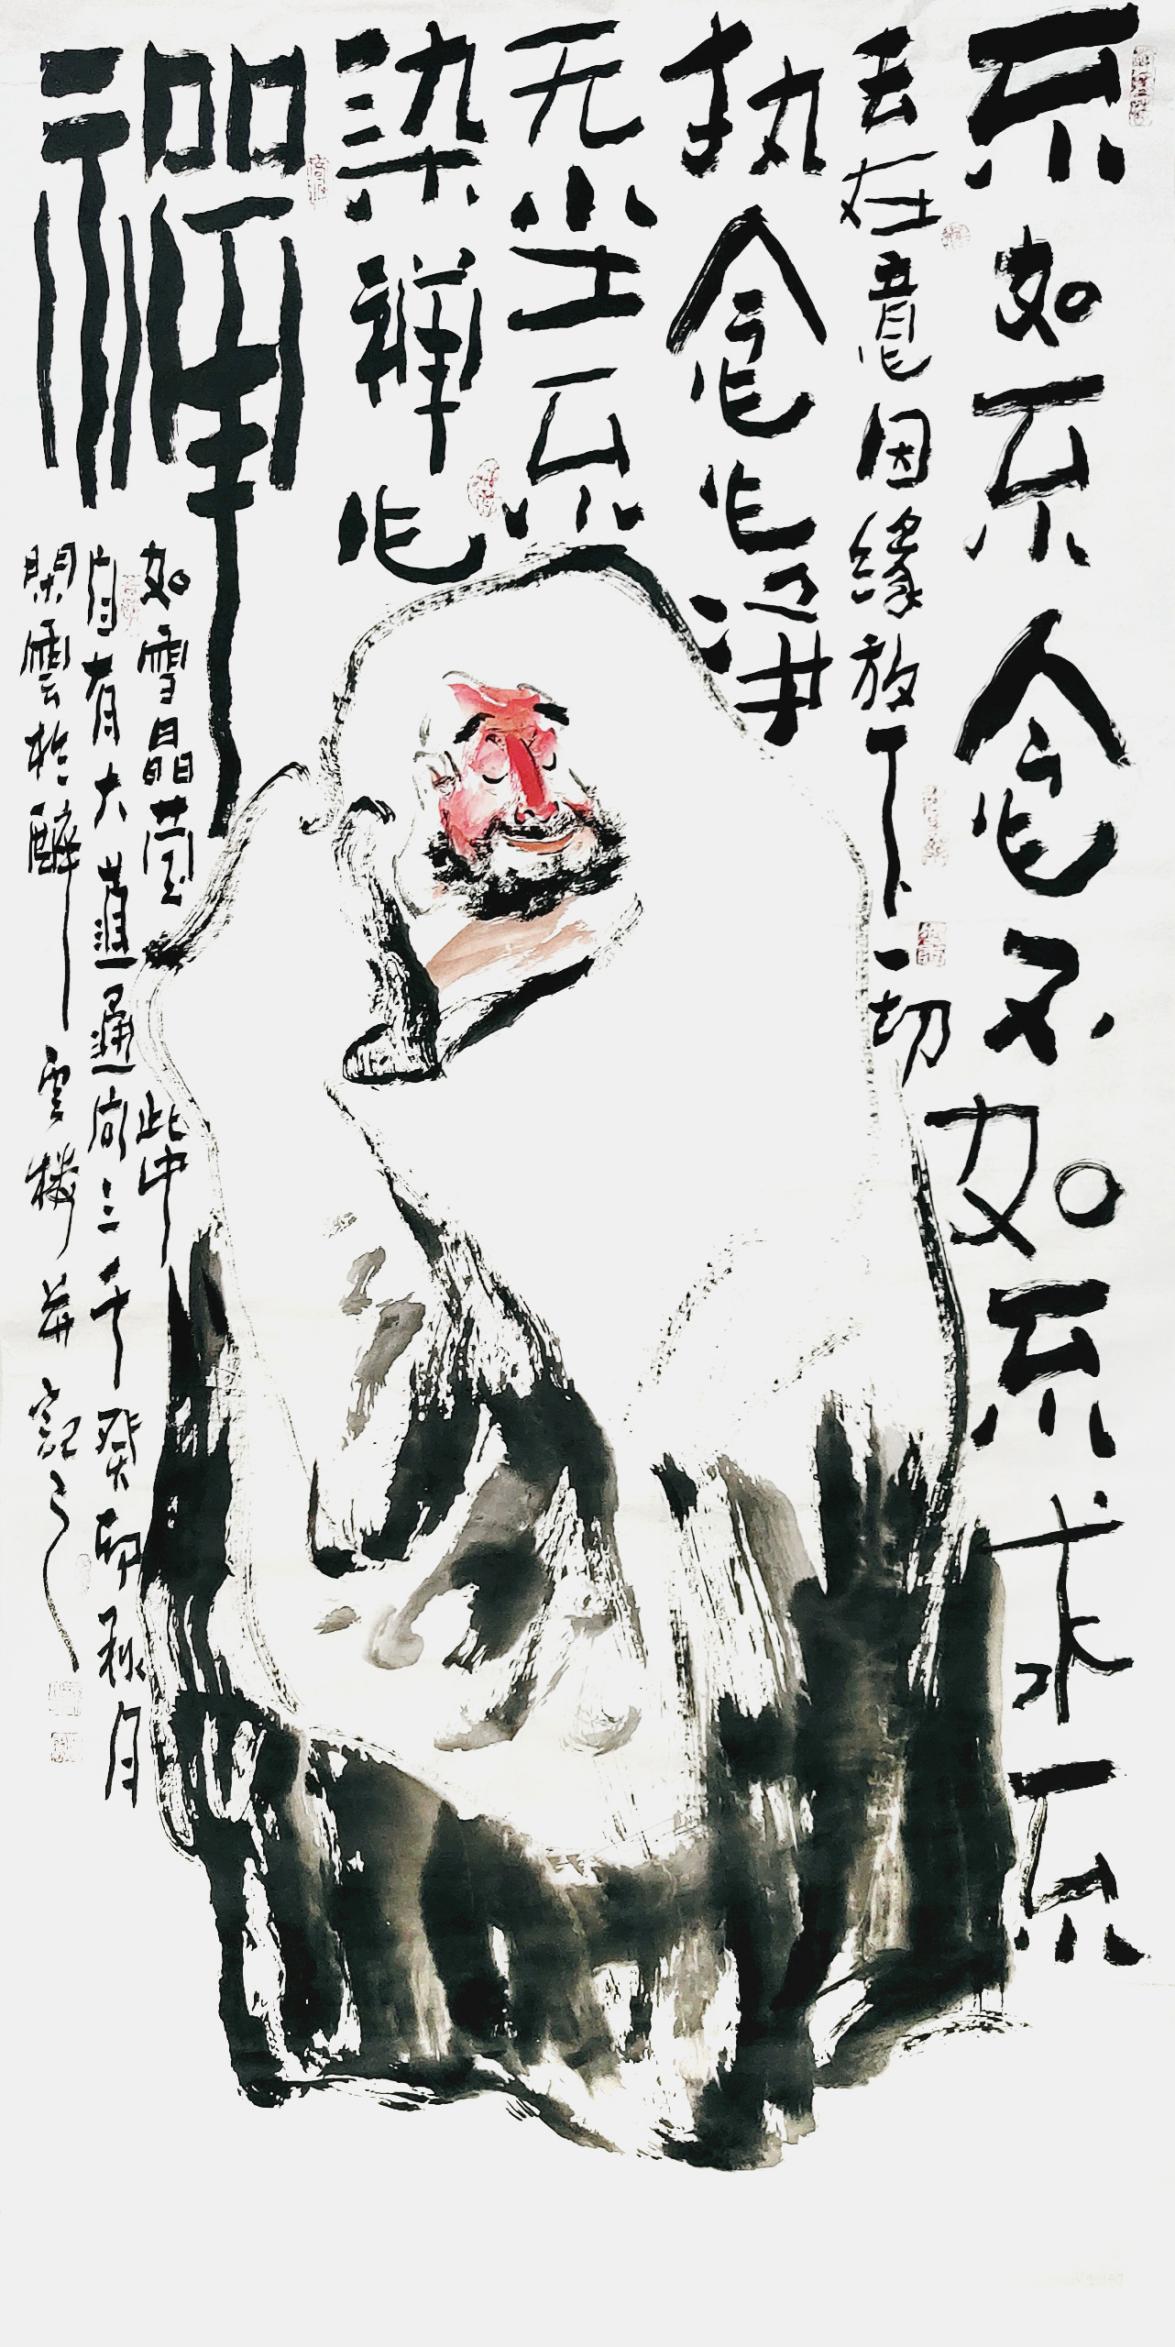 不如不念不如不求不
去在意因緣放下一切
执念心净
无尘不
染禅心
禪
如雪晶莹此中
自有大道通向三千癸卯秋月
閑雲於醉雲楼并記之